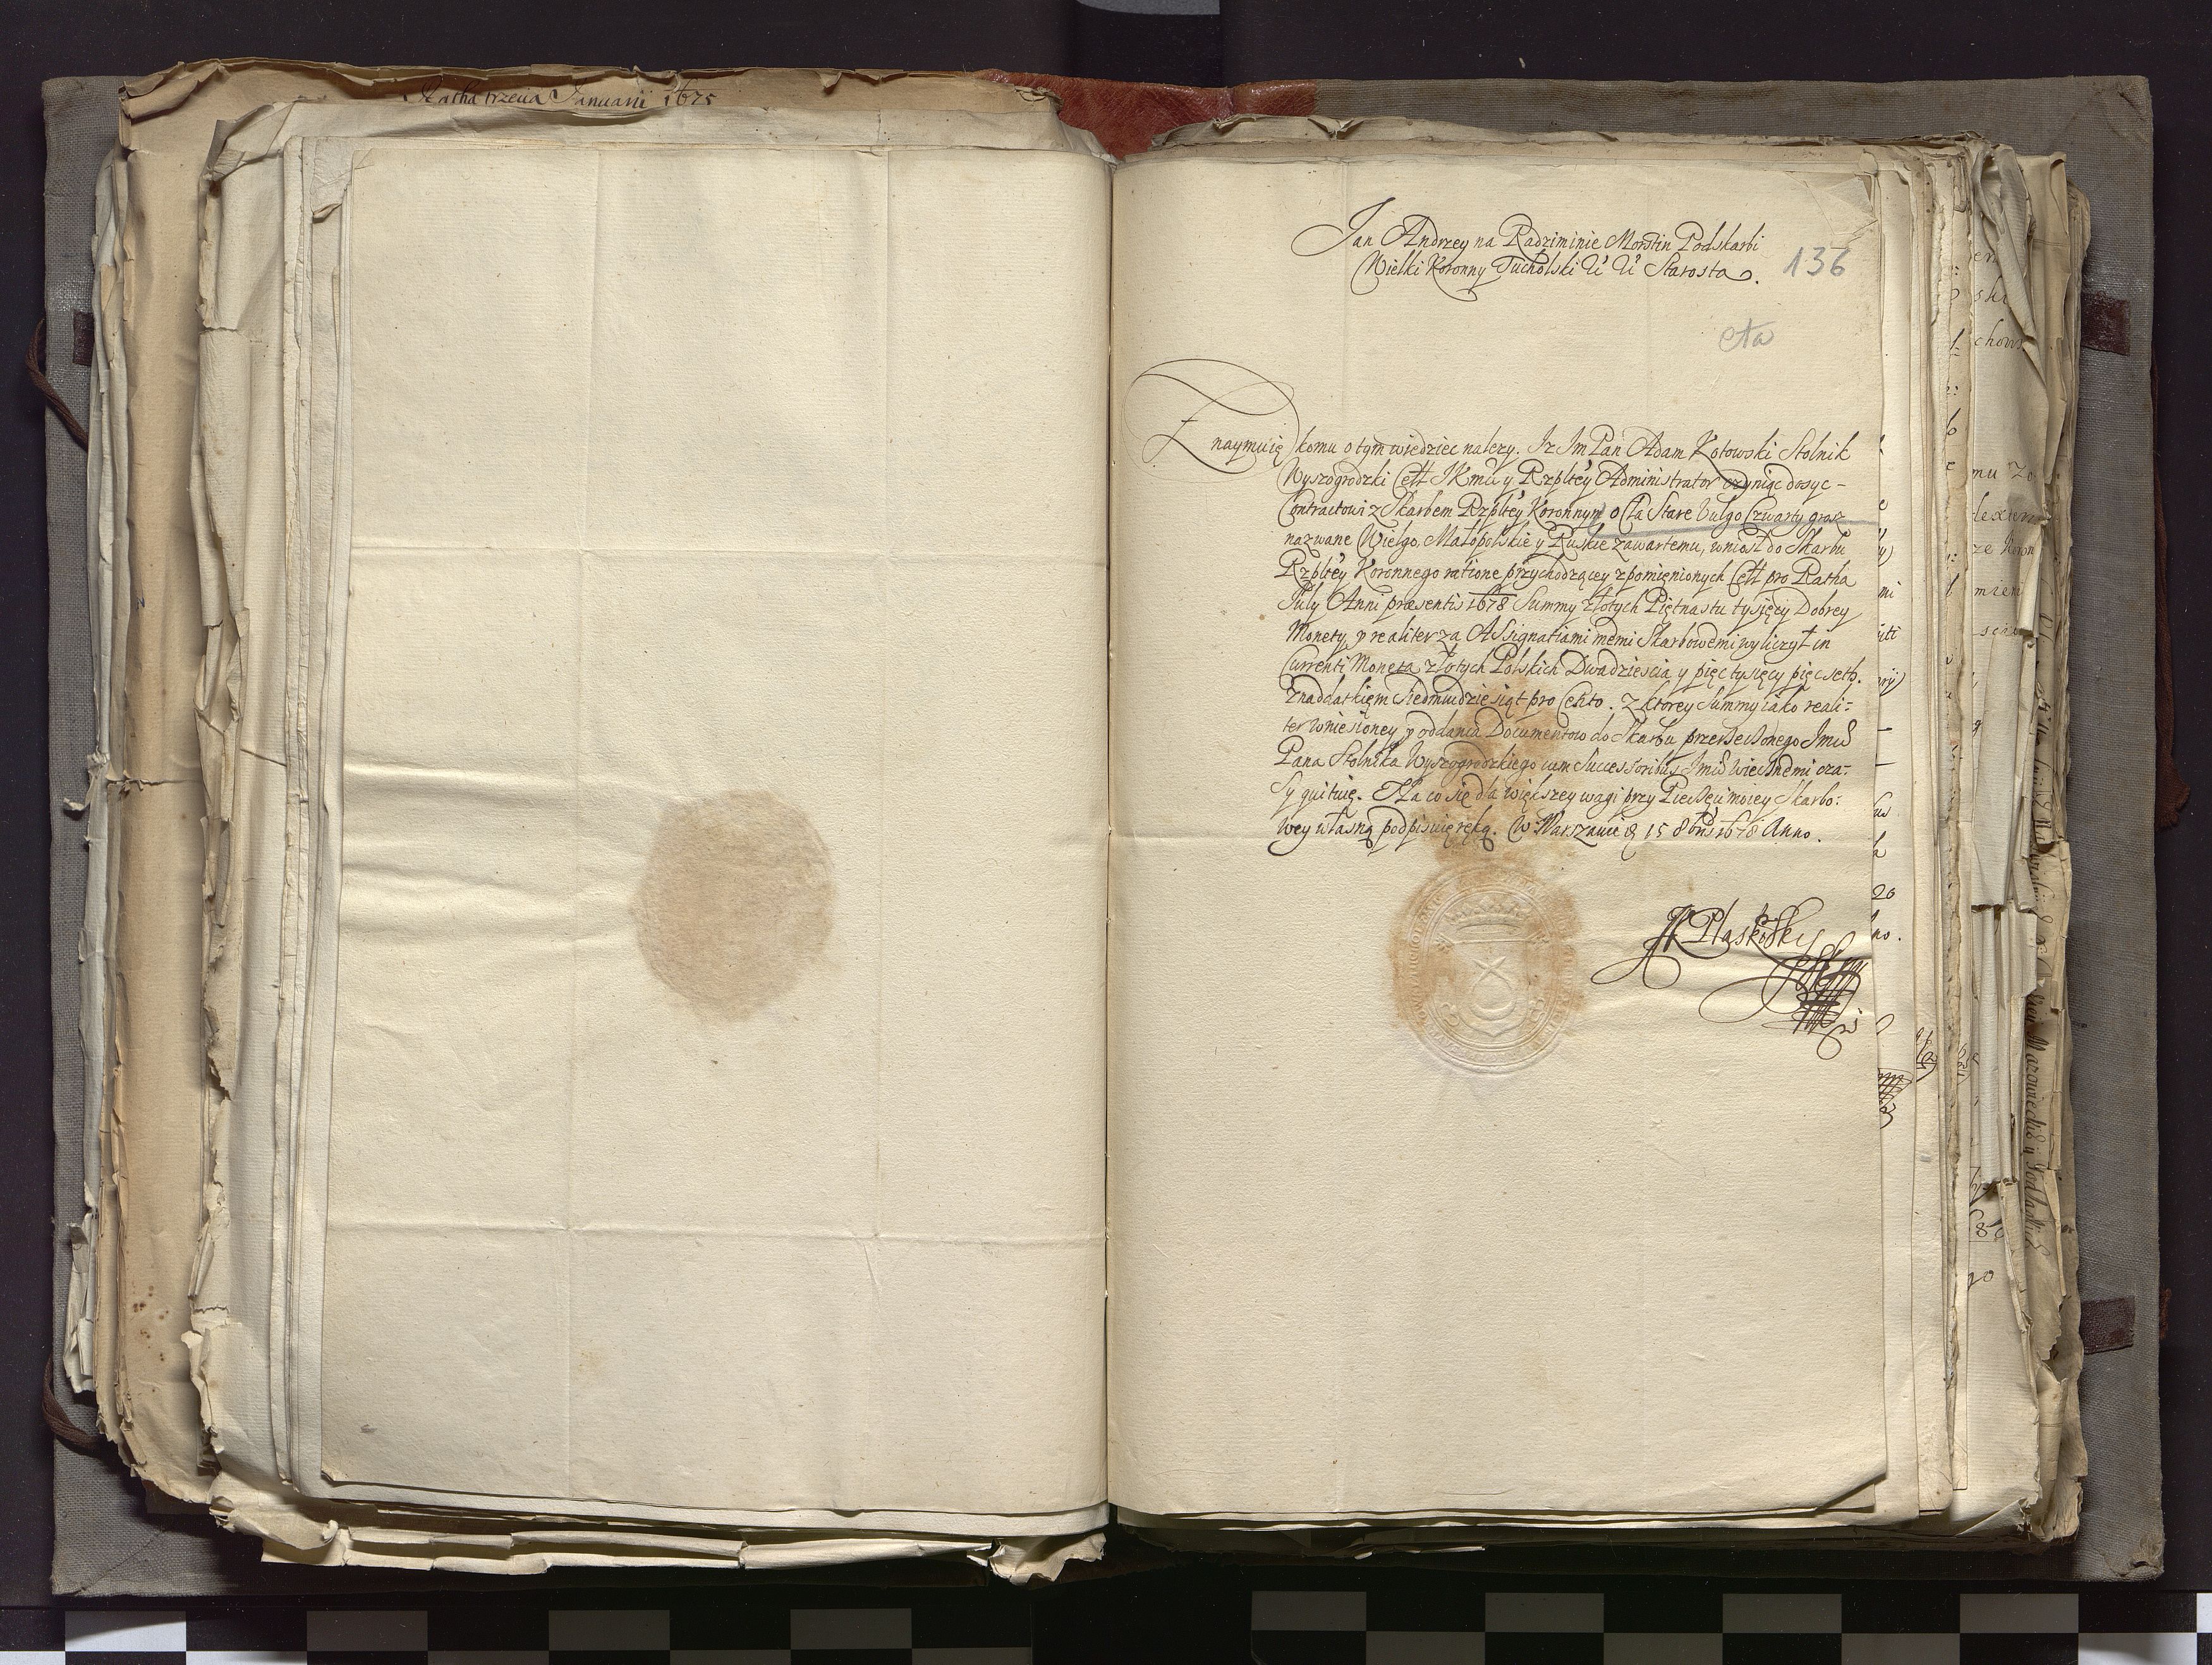 Ratha trzecia Januarii 1675
Jan Andrzey na Radziminie Morstin Podskarbi
Wielki Koronny Tucholski &c &c Starosta.
136
cła
Znaymuię komu o tym wiedziec nalezy. Iz Jm Pan Adam Kotowski Stolnik
Wyszogrodzki Cełł JKmci y Rzpltey Administrator czyniąc dosyc
Contractowi z Skarbem Rzpltey Koronnym o Cła Stare Vulgo Czwarty grosz
nazwane Wielgo, Małopolskie y Ruskie zawartemu, wniosł do Skarbu
Rzpltey Koronnego ratione przychodzącey z pomięnionych Cełł pro Ratha
July Anni præsentis 1678 Summy złotych Piętnastu tysięcy Dobrey
Monety, y realiter za Assignatiami memi Skarbowemi wyliczył in
Currenti Moneta złotych Polskich Dwadziescia y pięc tysięcy pięcseth.
Znaddatkięm siedmiudziesiąt pro Cento. Z ktorey Summy iako reali=
ter wniesioney, y oddania Documentow do Skarbu przerzeczonego Jmci
Pana Stolnika Wyszogrodzkiego cum Successoribus Jmci wiecznemi cza=
sy quituię. Na co się dla większey wagi przy Pieczęci moiey Skarbo=
wey własną podpisuię ręką. W Warszawie d 15 8bris 1678 Anno.